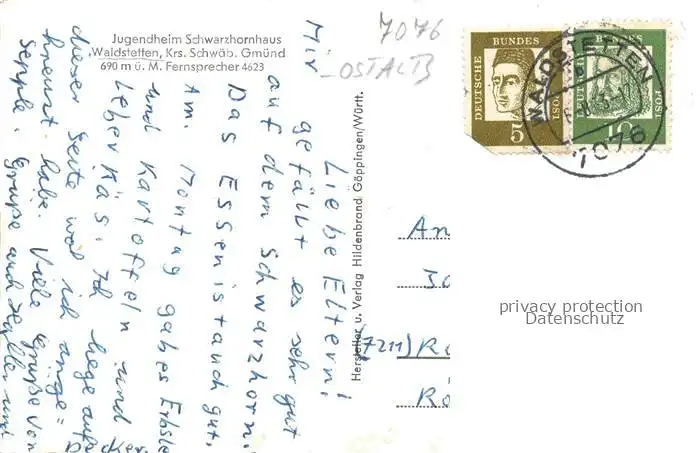 Jugendheim Schwarzhornhaus
Waldstetten, Krs. Schwäb. Gmünd
690 m ü. M. Fernsprecher 4623
7076
OSTALB
DEUTSCHE BUNDES POST
5
BUNDES
10
WALDSTETTEN
7076
Liebe Eltern!
Mir gefällt es sehr gut
auf dem Schwarzhorn.
Das Essen ist auch gut.
Am Montag gab es Erbsle
und Kartoffeln und
Leberkäs. Ich liege auf
dieser Seite weil ich
habe. Viele Grüße von
Sepple. Grüße auch und
Hersteller u. Verlag Hildenbrand Göppingen/Württ.
An
(7211)
privacy protection
Datenschutz